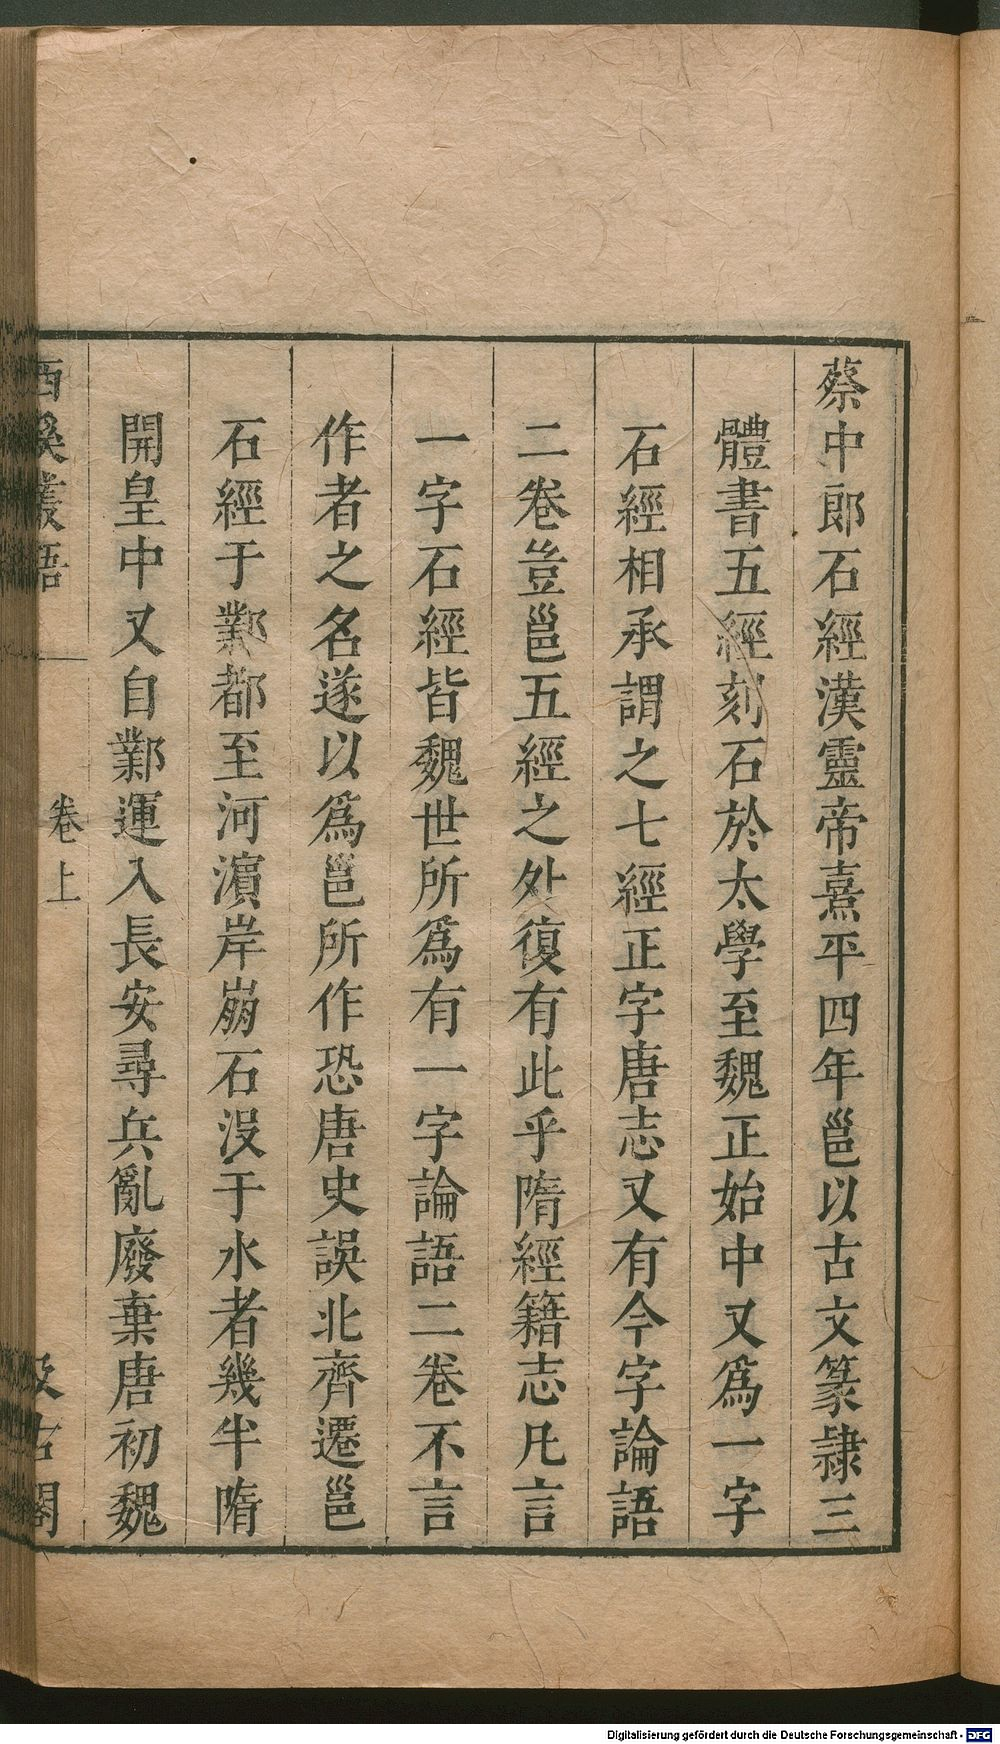 蔡中郎石經漢靈帝熹平四年邕以古文篆隷三
體書五經刻石於太學至魏正始中又爲一字
石經相承謂之七經正字唐志又有今字論語
二卷豈邕五經之外復有此乎隋經籍志凡言
一字石經皆魏世所爲有一字論語二卷不言
作者之名遂以爲邕所作恐唐史誤北齊遷邕
石經于鄴都至河濵岸崩石没于水者幾半隋
開皇中又自鄴運入長安尋兵亂廢棄唐初魏
西溪叢語
卷上
汲古閣
Digitalisierung gefördert durch die Deutsche Forschungsgemeinschaft - DFG